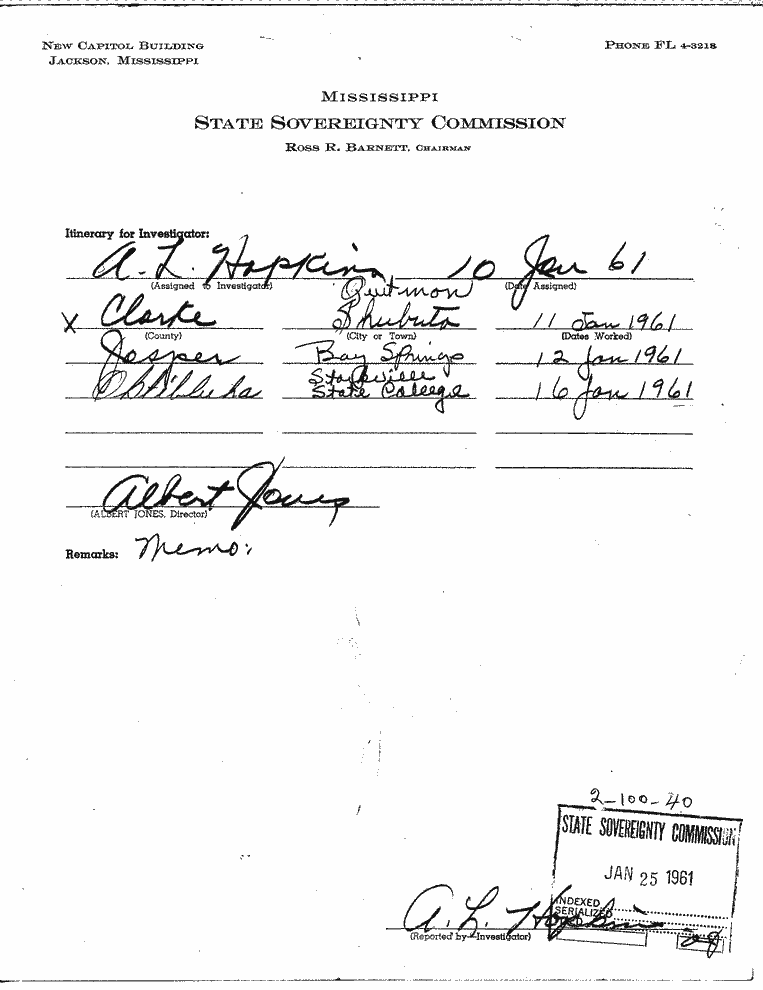 NEW CAPITOL BUILDING
JACKSON, MISSISSIPPI
PHONE FL 4-3218
MISSISSIPPI
STATE SOVEREIGNTY COMMISSION
ROSS R. BARNETT, CHAIRMAN
Itinerary for Investigator:
A. L. Hopkins 10 Jan 61
(Assigned to Investigator) (Date Assigned)
Quitman
X Clarke Shubuta 11 Jan 1961
(County) (City or Town) (Dates Worked)
Jasper Bay Springs 12 Jan 1961
Starkville
Oktibbeha State College 16 Jan 1961
Albert Jones
(ALBERT JONES, Director)
Remarks: Memo:
2-100-40
STATE SOVEREIGNTY COMMISSION
JAN 25 1961
INDEXED
SERIALIZED
A. L. Hopkins
(Reported by—Investigator)